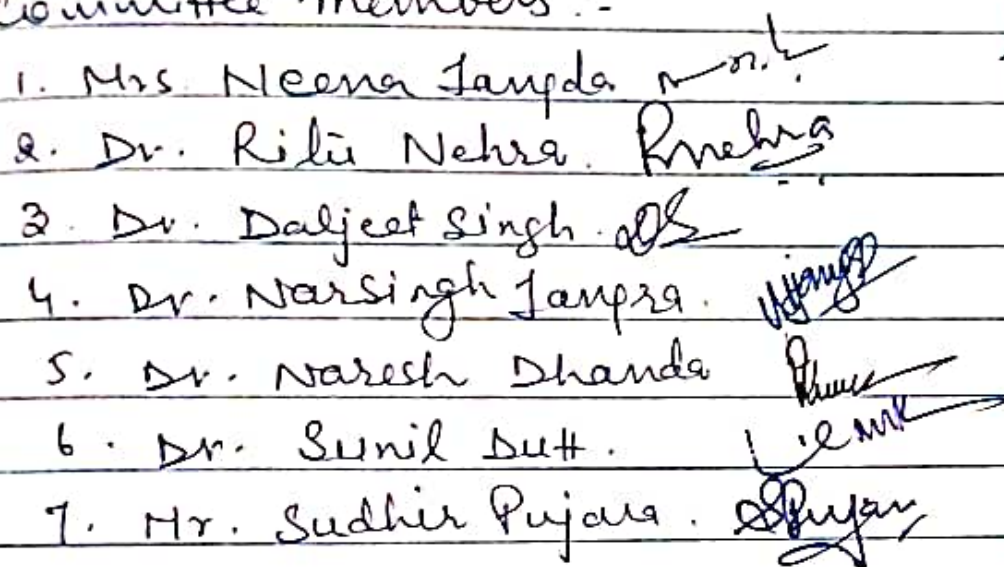 Committee Members :-
1. Mrs. Neena Jangda
2. Dr. Ritu Nehra. Rnehra
3. Dr. Daljeet Singh. DS
4. Dr. Narsingh Jangra.
5. Dr. Naresh Dhanda
6. Dr. Sunil Dutt.
7. Mr. Sudhir Pujara.